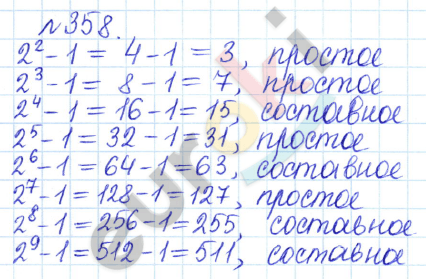 №358.
2² - 1 = 4 - 1 = 3, простое
2³ - 1 = 8 - 1 = 7, простое
2⁴ - 1 = 16 - 1 = 15, составное
2⁵ - 1 = 32 - 1 = 31, простое
2⁶ - 1 = 64 - 1 = 63, составное
2⁷ - 1 = 128 - 1 = 127, простое
2⁸ - 1 = 256 - 1 = 255, составное
2⁹ - 1 = 512 - 1 = 511, составное
euroki